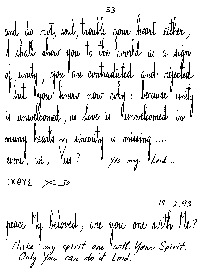 53
and do not, soul, trouble your heart either,
I shall show you to the world as a sign
of unity, you are contradicted and rejected
but you know now why: because unity
is unwelcomed, as love is unwelcomed in
many hearts, sincerity is missing....
come, we, us?  yes my Lord...
ΙΧΘΥΣ
18.2.93
peace My beloved, are you one with Me?
Make my spirit one with Your Spirit.
Only You can do it Lord.